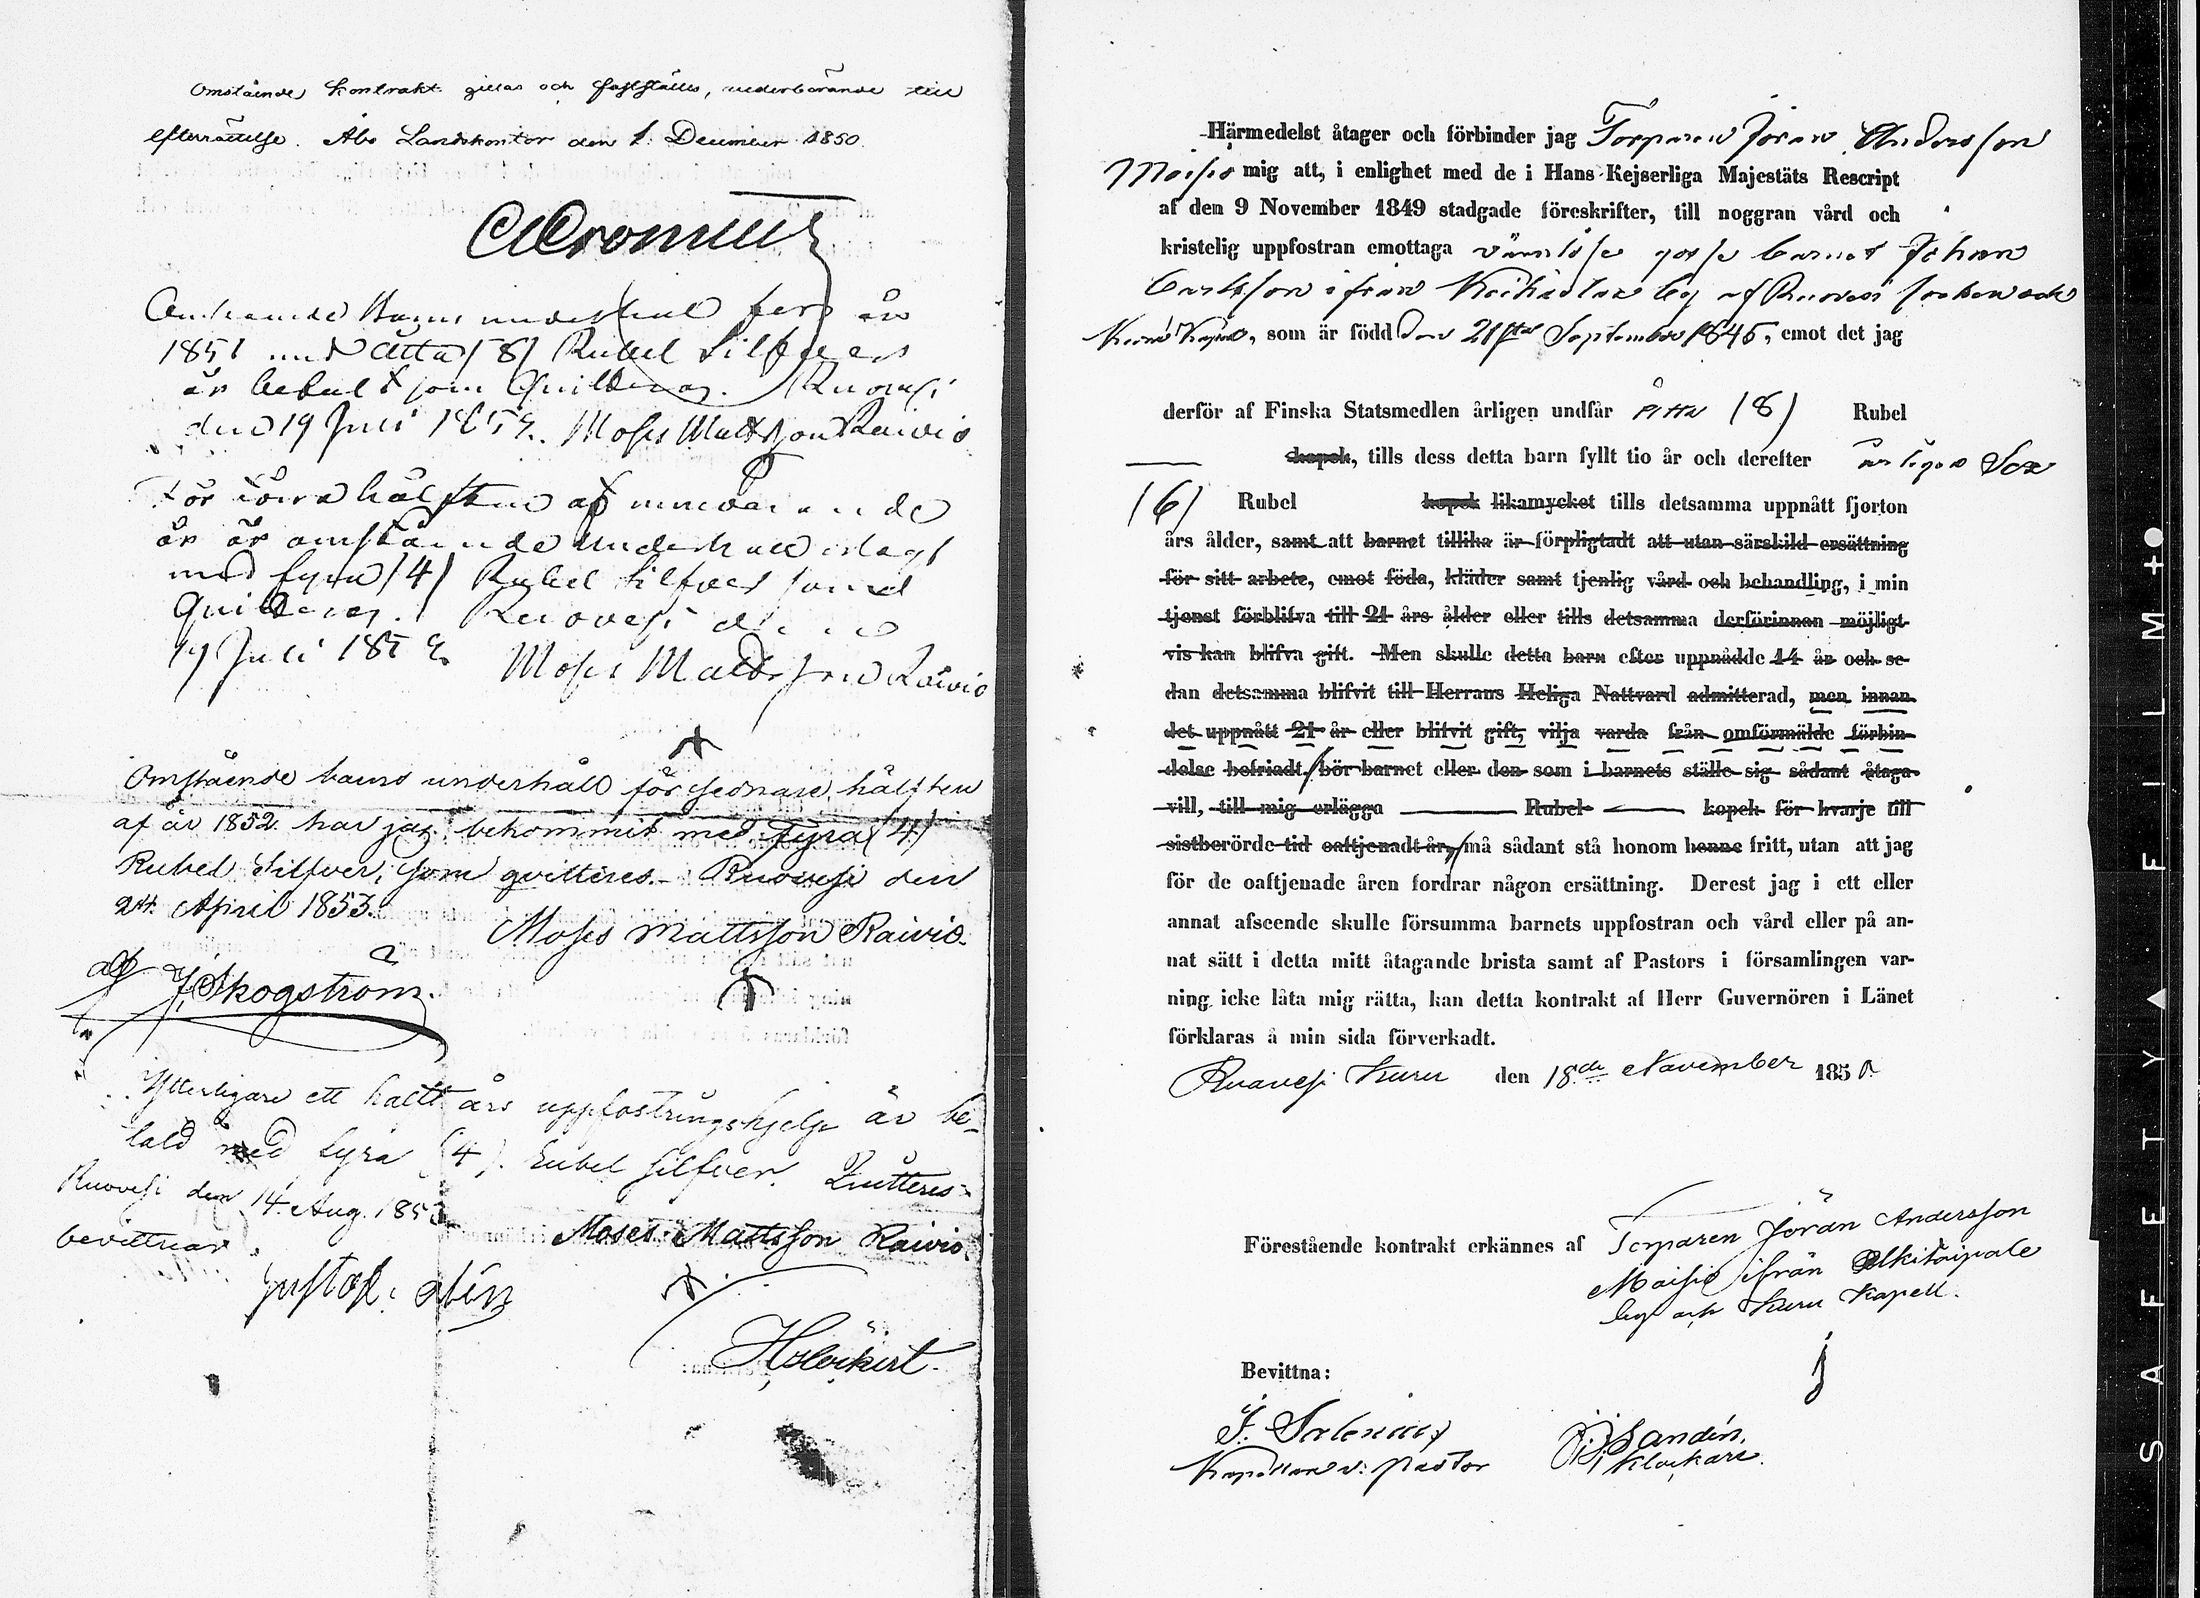 Omstående Kontrakt gillas och fastställes, vederbörande till
efterrättelse. Åbo Landskontor den 1 December 1850.
CCronstedt
Omstående Barns underhåll för år
1851 med åtta (8) Rubel Silfver
är betalt som Quitteras. Ruovesi
den 19 Juli 1852. Moses Mattsson Raivio
För förra hälften af innevarande
år är omstående underhåll erlagt
med fyra (4) Rubel Silfver som
Quitteras. Ruovesi den
19 Juli 1852. Moses Mattsson Raivio
Omstående barns underhåll för sednare hälften
af år 1852 har jag bekommit med Fyra (4)
Rubel Silfver, som qvitteres. Ruovesi den
24 April 1853.
Moses Mattsson Raivio.
af JSkogström.
Ytterligare ett halft års uppfostringshjelp är be-
tald med fyra (4) rubel silfver. Quitteres
Ruovesi den 14 Aug. 1853
Moses Mattsson Raivio.
bevittnar
Gustaf
Härmedelst åtager och förbinder jag Torparen Jöran Andersson
Moisio mig att, i enlighet med de i Hans Kejserliga Majestäts Rescript
af den 9 November 1849 stadgade föreskrifter, till noggran vård och
kristelig uppfostran emottaga värnlöse gosse barnet Johan
Carlsson ifrån by af Ruovesi socken och
Kuru Kapell, som är född den 21sta September 1845, emot det jag
derför af Finska Statsmedlen årligen undfår Åtta (8) Rubel
kopek, tills dess detta barn fyllt tio år och derefter årligen Sex
(6) Rubel kopek likamycket tills detsamma uppnått fjorton
års ålder, samt att barnet tillika är förpligtadt att utan särskild ersättning
för sitt arbete, emot föda, kläder samt tjenlig vård och behandling, i min
tjenst förblifva till 21 års ålder eller tills detsamma derförinnan möjligt-
vis kan blifva gift. Men skulle detta barn efter uppnådde 14 år och se-
dan detsamma blifvit till Herrans Heliga Nattvard admitterad, men innan
det uppnått 21 år eller blifvit gift, vilja varda från omförmälde förbin-
delse befriadt, bör barnet eller den som i barnets ställe sig sådant åtaga
vill, till mig erlägga Rubel kopek för hvarje till
sistberörde tid oaftjenadt år, må sådant stå honom henne fritt, utan att jag
för de oaftjenade åren fordrar någon ersättning. Derest jag i ett eller
annat afseende skulle försumma barnets uppfostran och vård eller på an-
nat sätt i detta mitt åtagande brista samt af Pastors i församlingen var-
ning icke låta mig rätta, kan detta kontrakt af Herr Guvernören i Länet
förklaras å min sida förverkadt.
Ruovesi Kuru den 18de November 1850
Förestående kontrakt erkännes af Torparen Jöran Andersson
Moisio ifrån Olkitaipale
by och Kuru Kapell.
Bevittna:
Kapellan v: pastor
Sandén,
Klockare.
SAFETY FILM